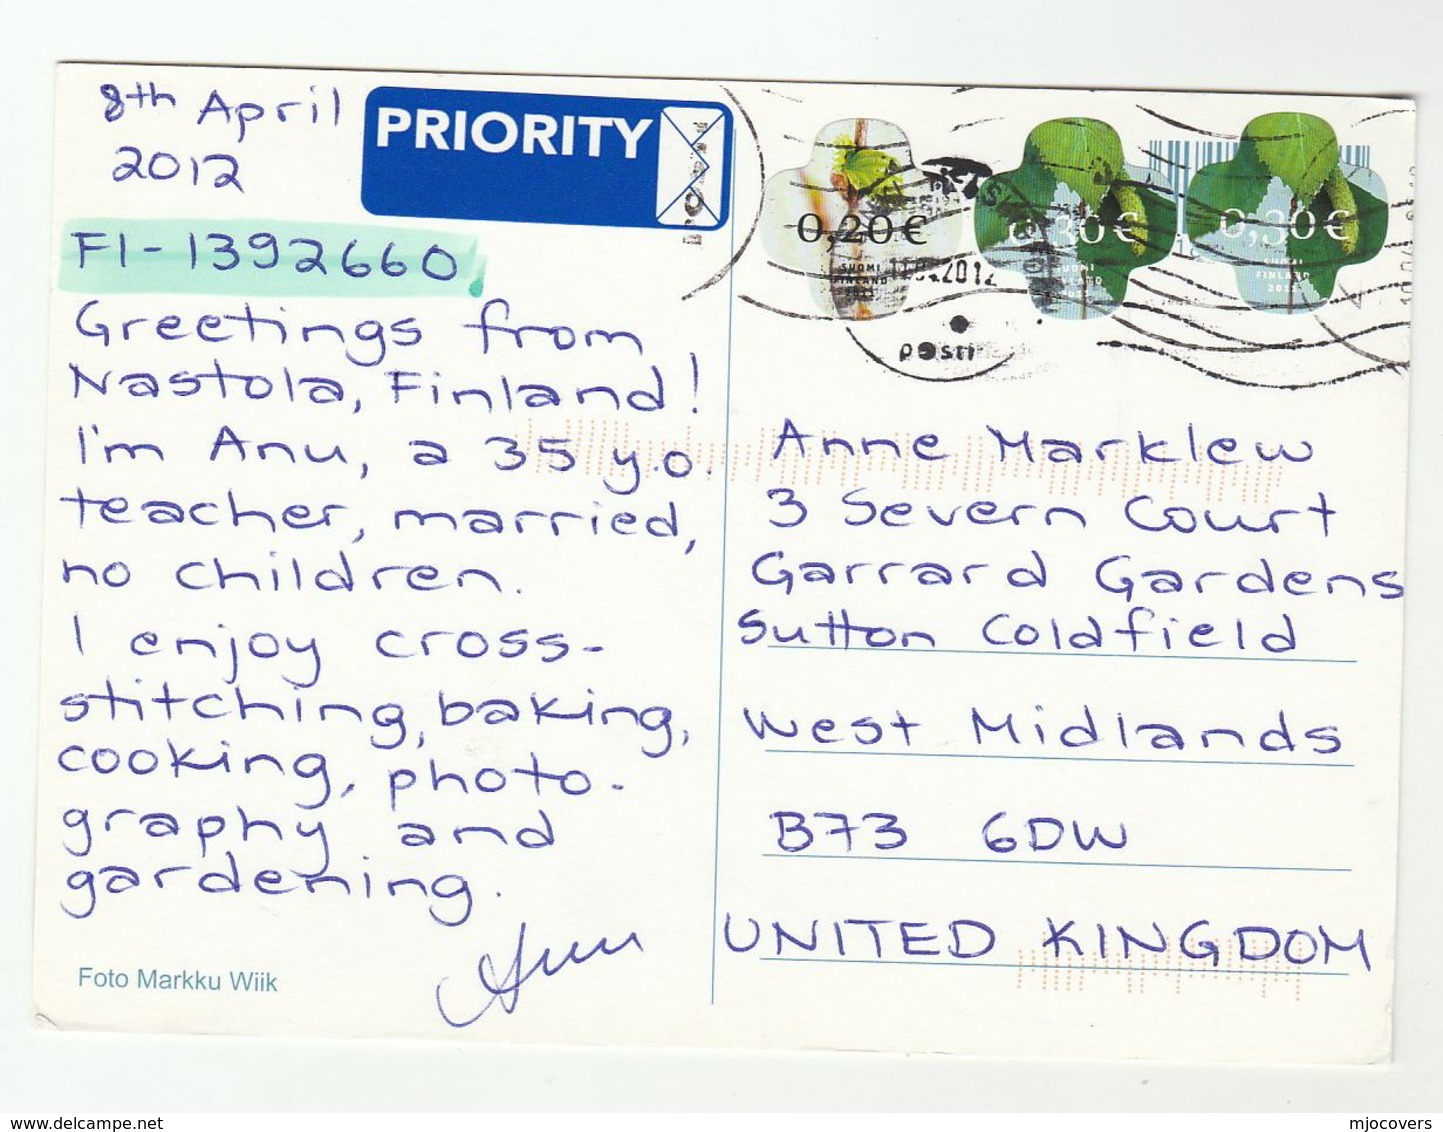 8th April
2012
PRIORITY
FI-1392660
Greetings from
Nastola, Finland!
I'm Anu, a 35 y.o.
teacher, married,
no children.
I enjoy cross-
stitching, baking,
cooking, photo-
graphy and
gardening.
Anu
Foto Markku Wiik
0,20€
SUOMI
FINLAND
2011
0,30€
SUOMI
0,30€
FINLAND
posti
Anne Marklew
3 Severn Court
Garrard Gardens
Sutton Coldfield
West Midlands
B73 6DW
UNITED KINGDOM
www.delcampe.net
mjocovers